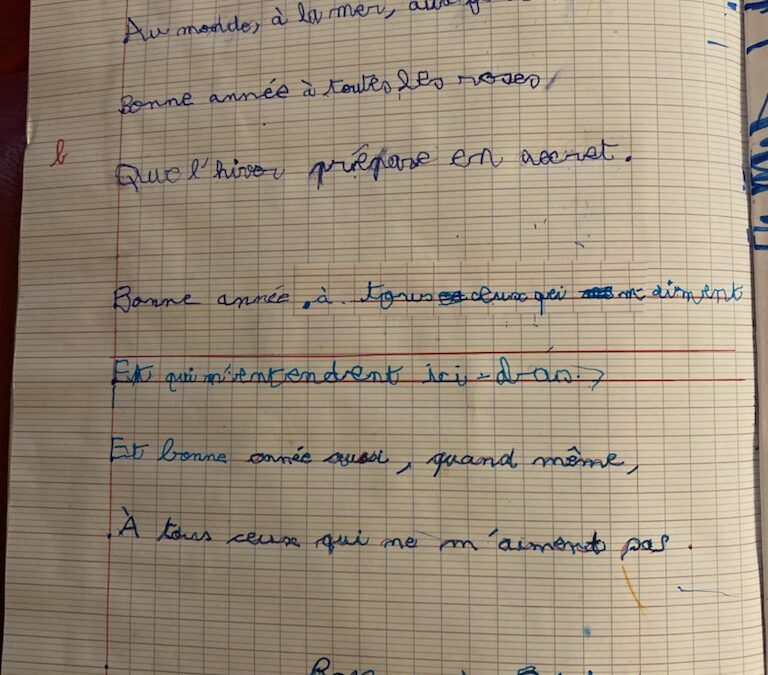 Au monde, à la mer, aux
Bonne année à toutes les roses
b
Que l'hiver prépare en secret.
Bonne année à tous ceux qui m'aiment
Et qui m'entendent ici-bas
Et bonne année aussi, quand même,
À tous ceux qui ne m'aiment pas.